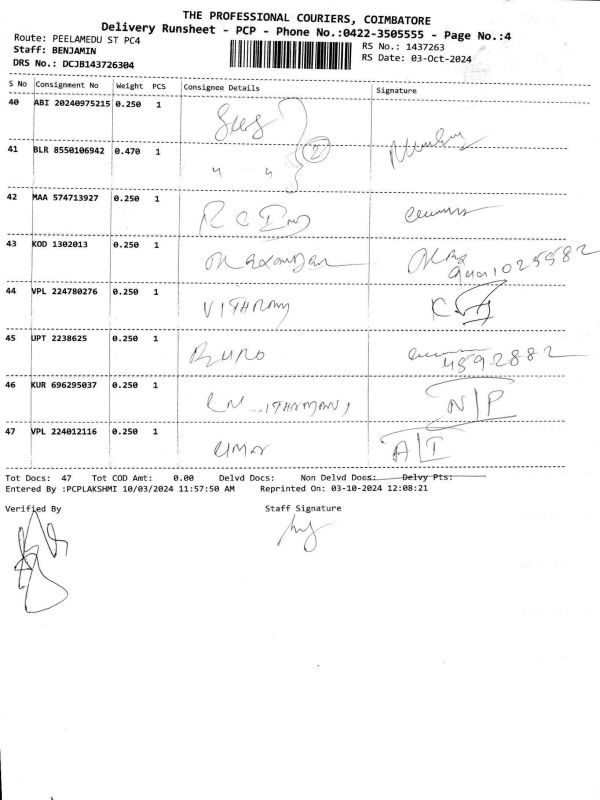 THE PROFESSIONAL COURIERS, COIMBATORE
Delivery Runsheet - PCP - Phone No.:0422-3505555 - Page No.:4
Route: PEELAMEDU ST PC4
RS No.: 1437263
Staff: BENJAMIN
RS Date: 03-Oct-2024
DRS No.: DCJB143726304
S No Consignment No Weight PCS Consignee Details Signature
40 ABI 20240975215 0.250 1
2
41 BLR 8550106942 0.470 1 " "
42 MAA 574713927 0.250 1
43 KOD 1302013 0.250 1
44 VPL 224780276 0.250 1
45 UPT 2238625 0.250 1
4592882
46 KUR 696295037 0.250 1 N/P
47 VPL 224012116 0.250 1 umar A/I
Tot Docs: 47 Tot COD Amt: 0.00 Delvd Docs: Non Delvd Docs: Delvy Pts:
Entered By :PCPLAKSHMI 10/03/2024 11:57:50 AM Reprinted On: 03-10-2024 12:08:21
Verified By Staff Signature